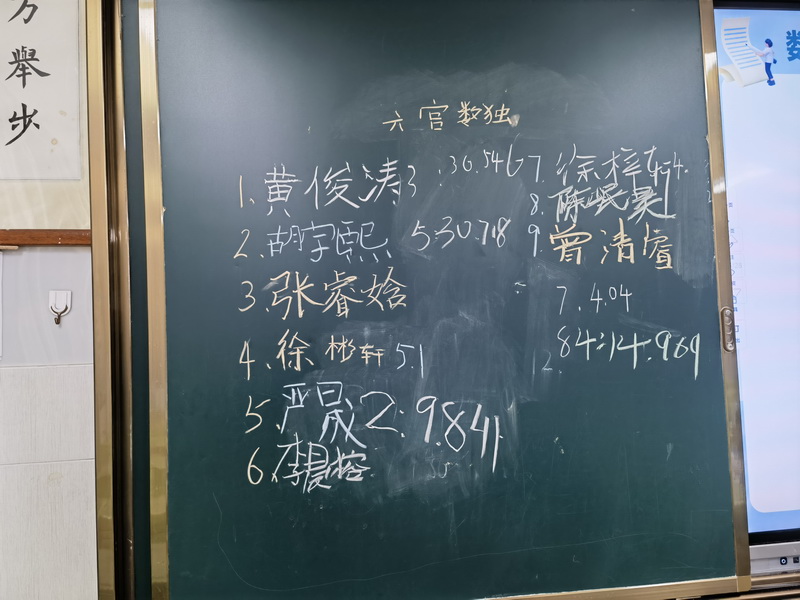 方
舉
步
六宫数独
1.黄俊涛3:36.546
2.胡宇熙 5:30.718
3.张睿焓
4.徐彬轩5.1
5.严晟2:9.841
6.李晨榕
7.徐梓轩4.
8.陈岷昊
9.曾清睿
7.4.04
84:14.969
12.
数